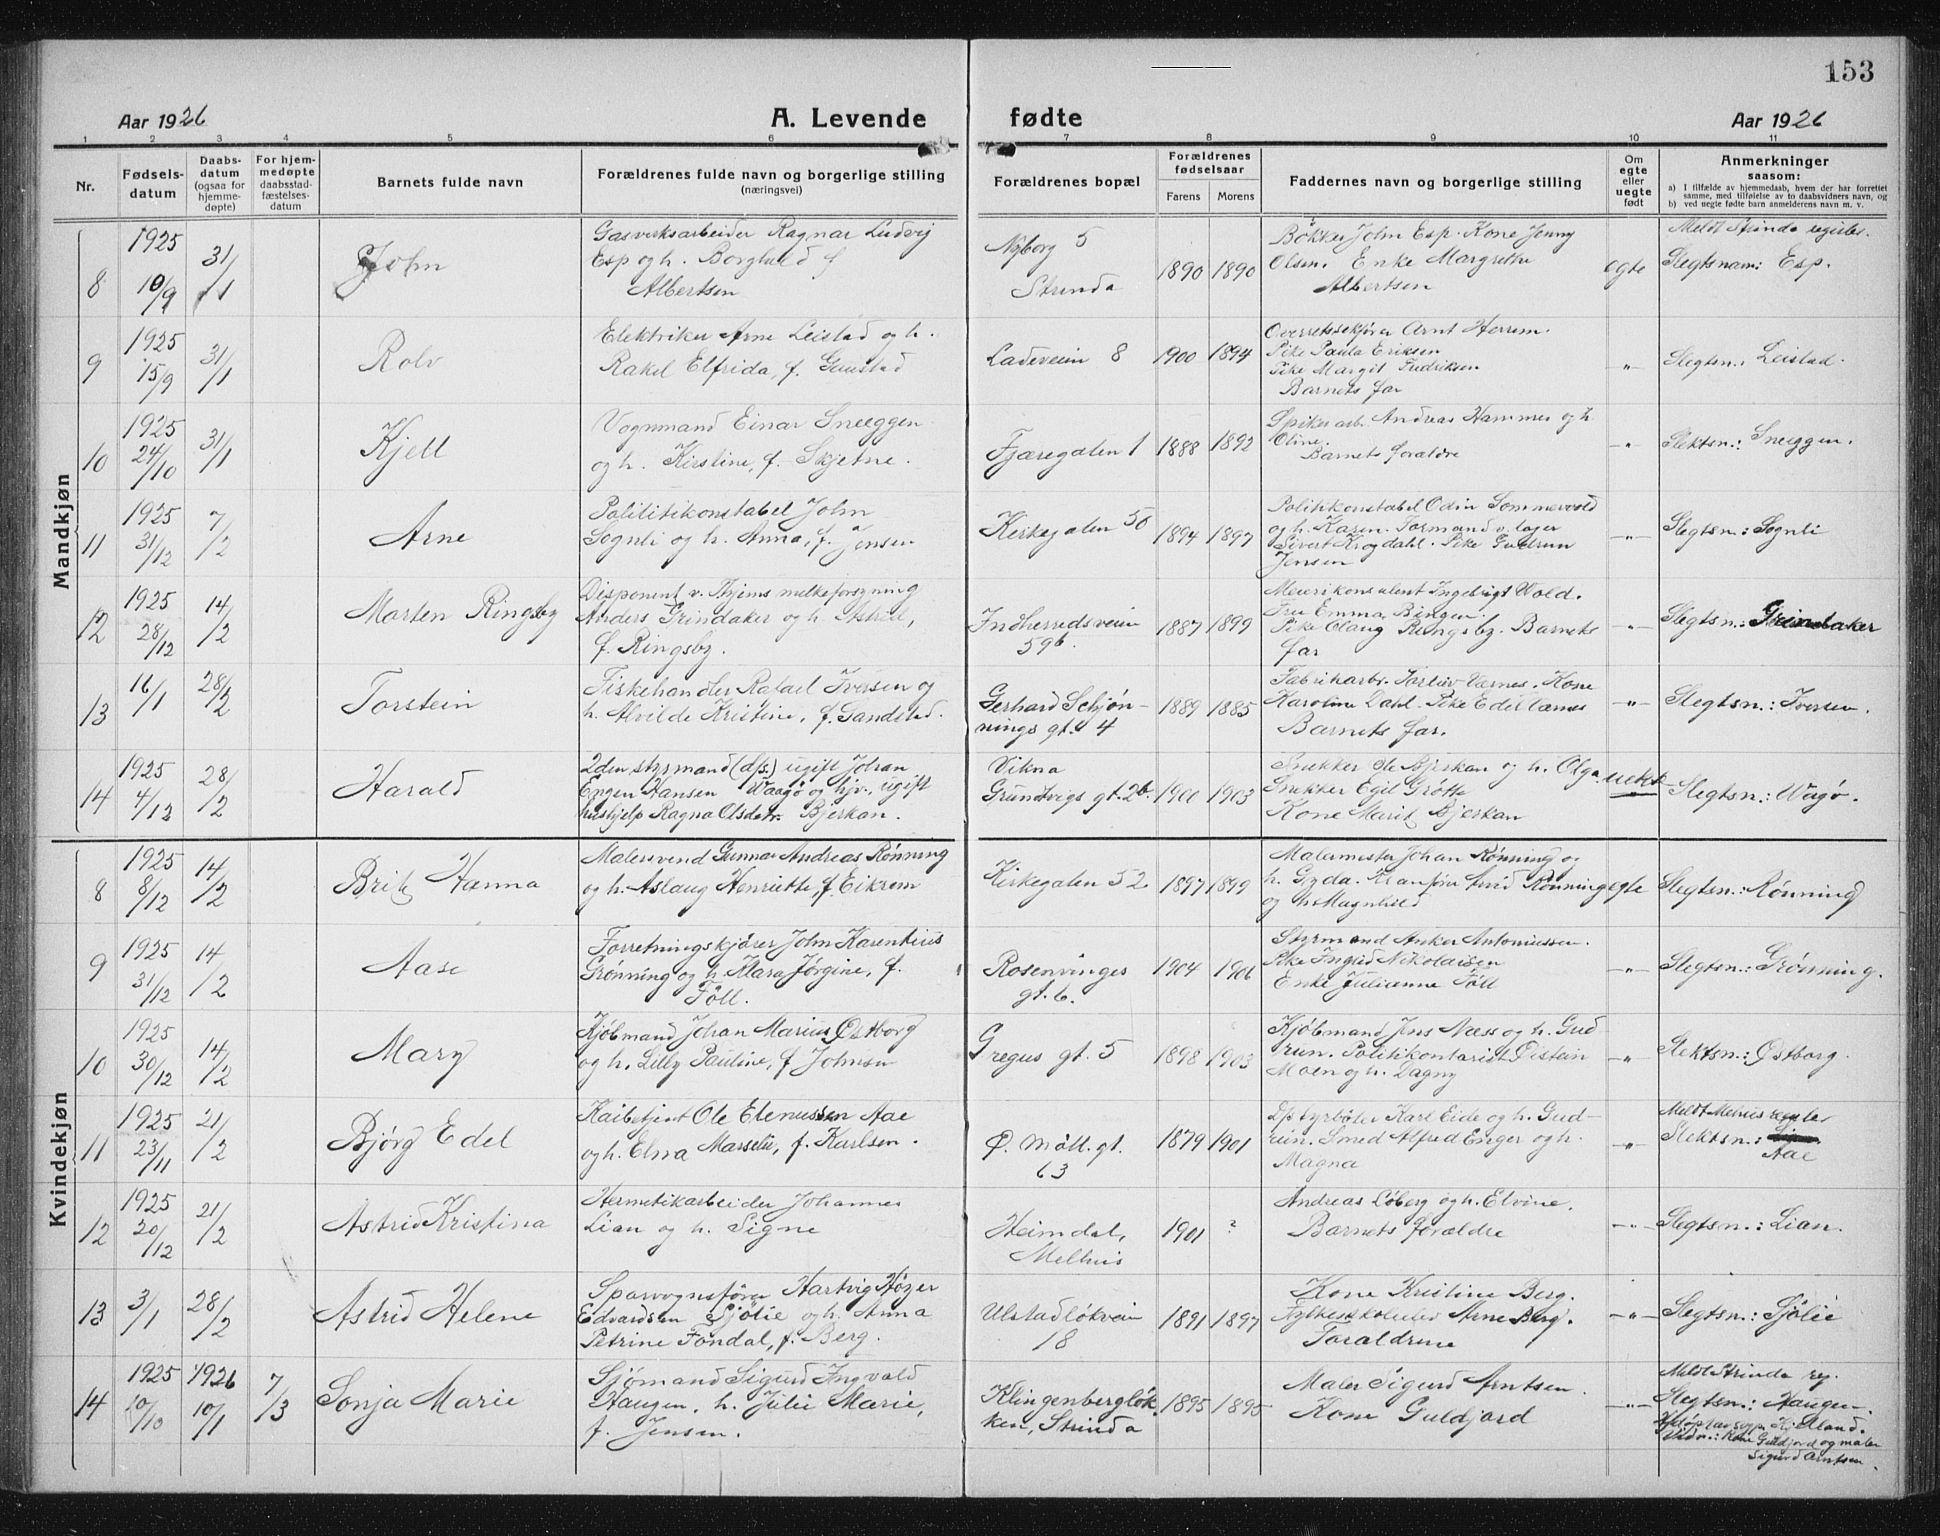 153
Aar 1926 A. Levende fødte Aar 1926
1 2 3 4 5 6 7 8 9 10 11
Nr. Fødselsdatum Daabsdatum (ogsaa for hjemmedøpte) For hjemmedøpte daabsstadfæstelsesdatum Barnets fulde navn Forældrenes fulde navn og borgerlige stilling (næringsvei) Forældrenes bopæl Forældrenes fødselsaar Farens Morens Faddernes navn og borgerlige stilling Om egte eller uegte født Anmerkninger saasom:
a) I tilfælde av hjemmedaab, hvem der har forrettet samme, med tilføielse av to daabsvidners navn, og
b) ved uegte fødte barn anmelderens navn m. v.
Mandkjøn
8 1925 10/9 31/1 John
Gasverksarbeider Ragnar Ludvig
Esp og h. Borghild f.
Albertsen
Nyborg 5
Strinda
1890 1890
Bökker John Esp. Kone Jenny
Olsen. Enke Margrethe
Albertsen
egte
Meldt Strinda register.
Slegtsnam: Esp.
9 1925 15/9 31/1 Rolv
Elektriker Arne Leistad og h.
Rakel Elfrida, f. Gunstad
Ladeveien 8
1900 1894
Overretssakfører Arnt Herrem.
Pike Paula Eriksen
Pike Margit Fredriksen
Barnets far
-"-
Slegtsn.: Leistad.
10 1925 24/10 31/1 Kjell
Vognmand Einar Sneeggen
og h. Kirstine, f. Skjetne.
Fjæregaten 1
1888 1892
Spikerarb. Andreas Hammer og h.
Oline.
Barnets foraldre
-"-
Slektsn.: Sneeggen.
11 1925 31/12 7/2 Arne
Polititikonstabel John
Sognli og h. Anna, f. Jensen
Kirkegaten 50
1894 1897
Politikonstabel Odin Sommervold
og h. Karen. Formand v. lager
Sivert Krogdahl. Pike Gudrun
Jensen
-"-
Slegtsn.: Sognli
12 1925 28/12 14/2 Marten Ringsby
Disponent v. Thjems melkeforsyning
Anders Grindaker og h. Astrid,
f. Ringsby.
Indherredsveien
59b.
1887 1899
Meierikonsulent Ingebrigt Wold.
Fru Emma Bingen.
Pike Olaug Ringsby. Barnets
far
-"-
Slegtsn.: Grindaker
13 16/1 28/2 Torstein
Fiskehandler Rafael Iversen og
h. Alvilde Kristine, f. Sandstad.
Gerhard Schjøn-
nings gt. 4
1889 1885
Fabrikarb. Torleiv Værnes. Kone
Karoline Dahl. Pike Edel Værnes
Barnets far.
-"-
Slegtsn.: Iversen.
14 1925 4/12 28/2 Harald
2den styrmand (d/s.) ugift Johan
Engen Hansen Waagø og hjv., ugift
hushjelp Ragna Olsdtr. Bjerkan.
Vikna
Grundtvigs gt. 2b.
1900 1903
Snekker Ole Bjerkan og h. Olga.
Snekker Egil Grøtte
Kone Marit Bjerkan
uekte
Slegtsn.: Wagø.
Kvindekjøn
8 1925 8/12 14/2 Brit Hanna
Malersvend Gunnar Andreas Rønning
og h. Aslaug Henriette, f. Eikrem
Kirkegaten 52
1897 1899
Malermester Johan Rønning og
h. Gyda. Kranfører Arvid Rønning
og h. Magnhild
egte
Slegtsn.: Rønning
9 1925 31/12 14/2 Aase
Forretningskjører John Karentius
Grønning og h. Klara Jørgine, f.
Föll.
Rosenvinges
gt. 6.
1904 1906
Styrmand Anker Antoniussen.
Pike Ingrid Nikolaisen
Enke Julianne Föll
-"-
Slegtsn.: Grønning.
10 1925 30/12 14/2 Mary
Kjöbmand Johan Marius Østborg
og h. Lilly Pauline, f. Johnsen
Gregus gt. 5
1898 1903
Kjöbmand Jens Næss og h. Gud
run. Politikontorist Øistein
Moen og h. Dagny
-"-
Slektsn.: Østborg.
11 1925 23/11 21/2 Bjørg Edel
Kaibetjent Ole Elenussen Aae
og h. Elna Marselie, f. Karlsen.
Ø. Möll. gt.
63
1879 1901
D/s fyrböter Karl Eide og h. Gud-
run. Smed Alfred Enger og h.
Magna
-"-
Meldt Melhus register
Slektsn.:
Aae
12 1925 20/12 21/2 Astrid Kristina
Hermetikarbeider Johannes
Lian og h. Signe
Heimdal,
Melhus
1901 ?
Andreas Löberg og h. Elvine.
Barnets forældre
-"-
Slegtsn.: Lian.
13 3/1 28/2 Astrid Helene
Sporvognsfører Hartvig Høyer
Edvardsen Sjölie og h. Anna
Petrine Fondal, f. Berg.
Ulstadløkveien
18
1891 1897
Kone Kristine Berg.
Fylkesskoleelev Arne Berg.
Foraldrene
-"-
Slegtsn.: Sjölie
14 1925 10/10 1926 10/1 7/3 Sonja Marie
Sjömand Sigurd Ingvald
Haugen, h. Julie Marie,
f. Jensen.
Klingenbergløk
ken, Strinda
1895 1895
Maler Sigurd Arntsen.
Kone Guldjord
-"-
Meldt Strinda reg.
Slegtsn.: Haugen.
Vidn.: Kone Guldjord og maler
Sigurd Arntsen.